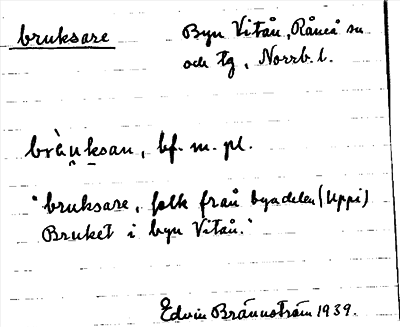 bruksare
Byn Vitån, Råneå sn
och tg, Norrb. l.
bràu̯ksan, bf. m. pl.
"bruksare, folk från byadelen (Uppi)
Bruket i byn Vitån."
Edvin Brännström 1939.